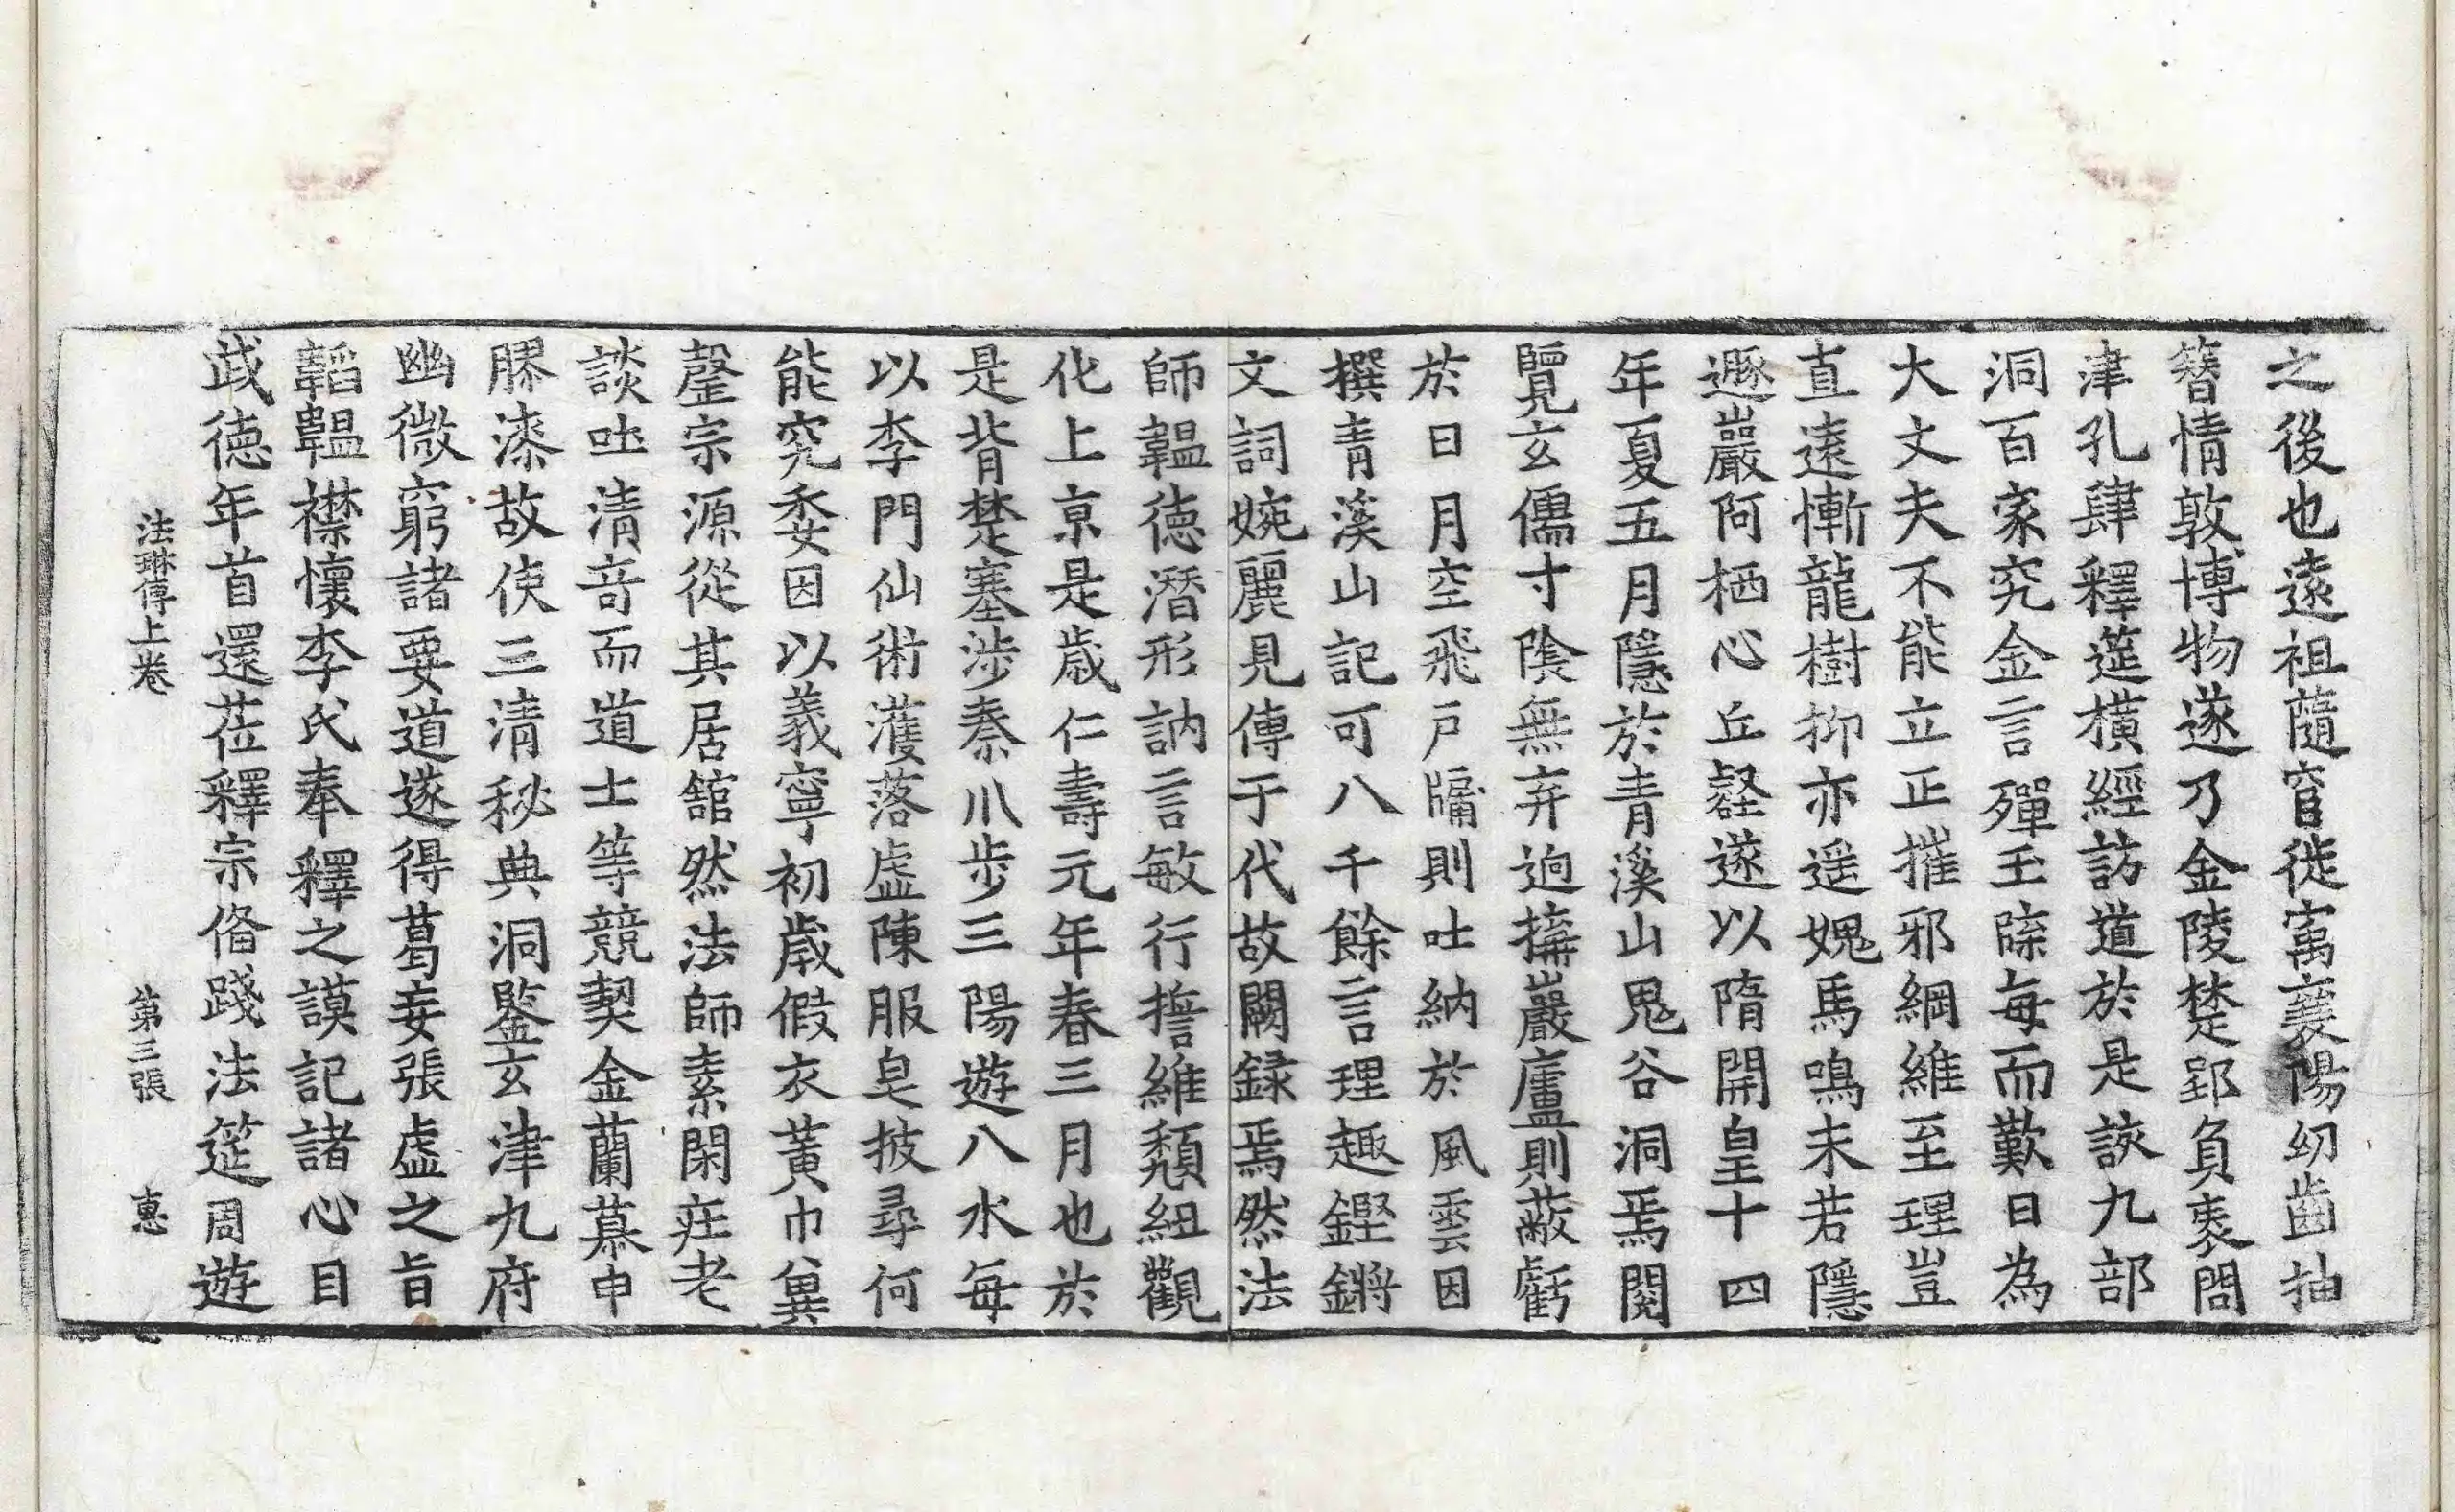 之後也遠祖隨宦徙寓襄陽幼齒抽
簪情敦博物遂乃金陵楚郢負袠問
津孔肆釋莚橫經訪道於是該九部
洞百家究金言殫玉牒每而歎曰為
大丈夫不能立正摧邪網維至理豈
直遠慚龍樹抑亦遥媿馬鳴未若隱
遯巖阿栖心丘壑遂以隋開皇十四
年夏五月隱於青溪山鬼谷洞焉閱
覽玄儒寸陰無弃逈構巖廬則蔽虧
於日月空飛戶牖則吐納於風雲因
撰青溪山記可八千餘言理趣鏗鏘
文詞婉麗見傳于代故闕録焉然法
師韞徳潛形訥言敏行擔維頹紐觀
化上京是歳仁壽元年春三月也於
是背楚塞涉秦川步三陽遊八水每
以李門仙術濩落虛陳服皂披尋何
能究委因以義寧初歲假衣黃巾兾
罄宗源從其居舘然法師素閑莊老
談吐清音而道士等競契金蘭慕申
膠漆故使三清秘典洞鑒玄津九府
幽微窮諸要道遂得葛妄張虛之旨
韜韞襟懷李氏奉釋之謨記諸心目
武徳年首還莅釋宗俻踐法筵周遊
法琳傳上卷 第三張 惠